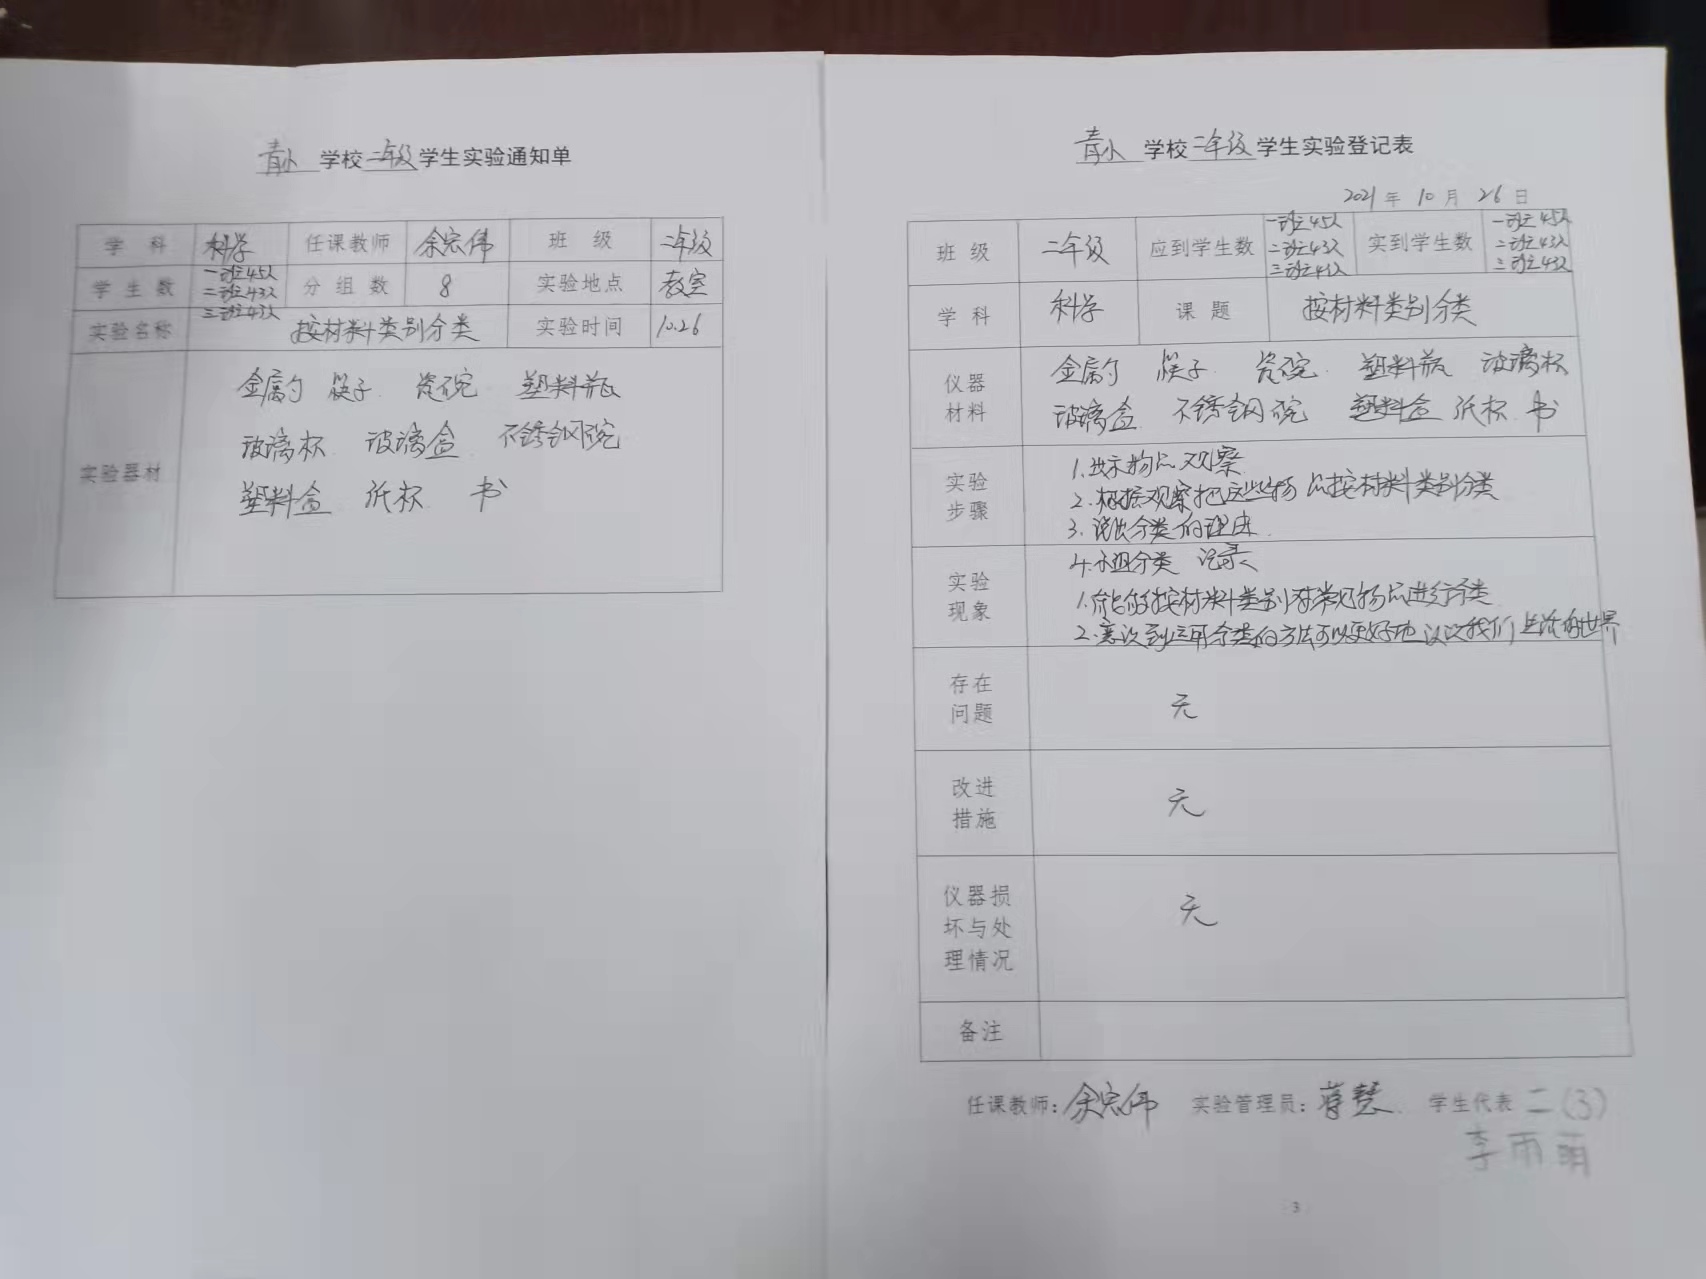 青小 学校 二年级 学生实验通知单
学科 科学 任课教师 余宏伟 班级 二年级
学生数 一班45人 二班43人 三班43人 分组数 8 实验地点 教室
实验名称 按材料类别分类 实验时间 10.26
实验器材
金属勺 筷子 瓷碗 塑料瓶
玻璃杯 玻璃盒 不锈钢碗
塑料盒 纸杯 书
青小 学校 二年级 学生实验登记表
2021 年 10 月 26 日
班级 二年级 应到学生数 一班45人 二班43人 三班43人 实到学生数 一班45人 二班43人 三班43人
学科 科学 课题 按材料类别分类
仪器
材料
金属勺 筷子 瓷碗 塑料瓶 玻璃杯
玻璃盒 不锈钢碗 塑料盒 纸杯 书
实验
步骤
1.出示物品 观察
2.根据观察把这些物品按材料类别分类
3.说出分类的理由
4.小组分类 记录
实验
现象
1.能够按材料类别对常见物品进行分类
2.意识到运用分类的方法可以更好地认识我们生活的世界
存在
问题
无
改进
措施
无
仪器损
坏与处
理情况
无
备注
任课教师：余宏伟 实验管理员：蒋慧 学生代表 二（3）
李雨萌
3